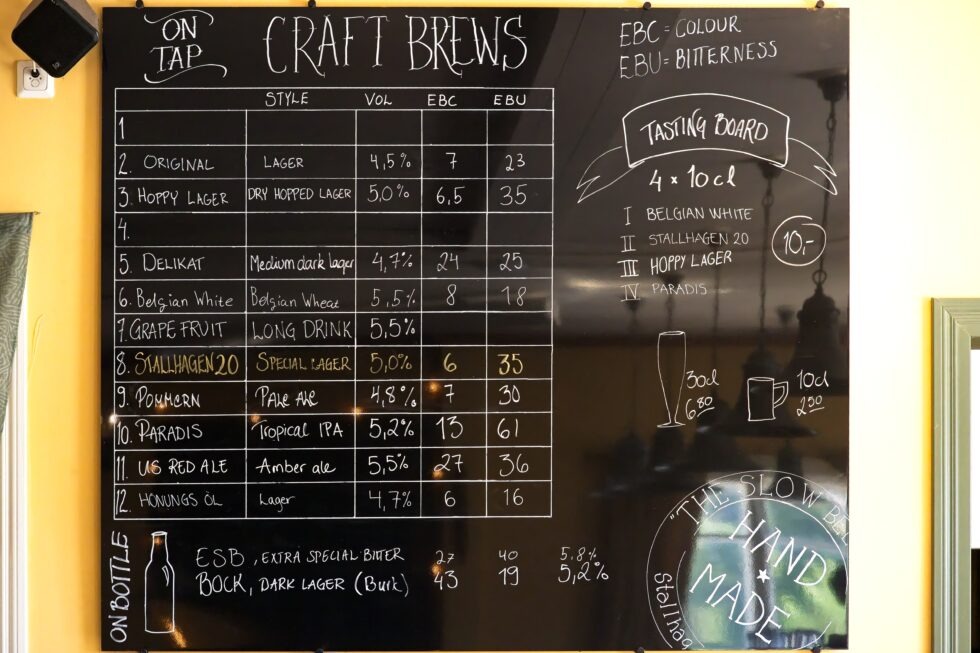 ON TAP
CRAFT BREWS
STYLE VOL EBC EBU
1
2. ORIGINAL LAGER 4,5% 7 23
3. HOPPY LAGER DRY HOPPED LAGER 5,0% 6,5 35
4.
5. DELIKAT Medium dark lager 4,7% 24 25
6. Belgian White Belgian Wheat 5,5% 8 18
7. GRAPEFRUIT LONG DRINK 5,5%
8. STALLHAGEN 20 SPECIAL LAGER 5,0% 6 35
9. POMMERN PALE ALE 4,8% 7 30
10. PARADIS Tropical IPA 5,2% 13 61
11. US RED ALE Amber ale 5,5% 27 36
12. HONUNGS ÖL Lager 4,7% 6 16
ON BOTTLE
ESB, EXTRA SPECIAL BITTER 27 40 5.8%
BOCK, DARK LAGER (Burk) 43 19 5,2%
EBC = COLOUR
EBU = BITTERNESS
TASTING BOARD
4 x 10 cl
I BELGIAN WHITE
II STALLHAGEN 20
III HOPPY LAGER
IV PARADIS
10,-
30cl
6 80
10cl
2 50
"THE SLOW
HAND
MADE
Stallhag